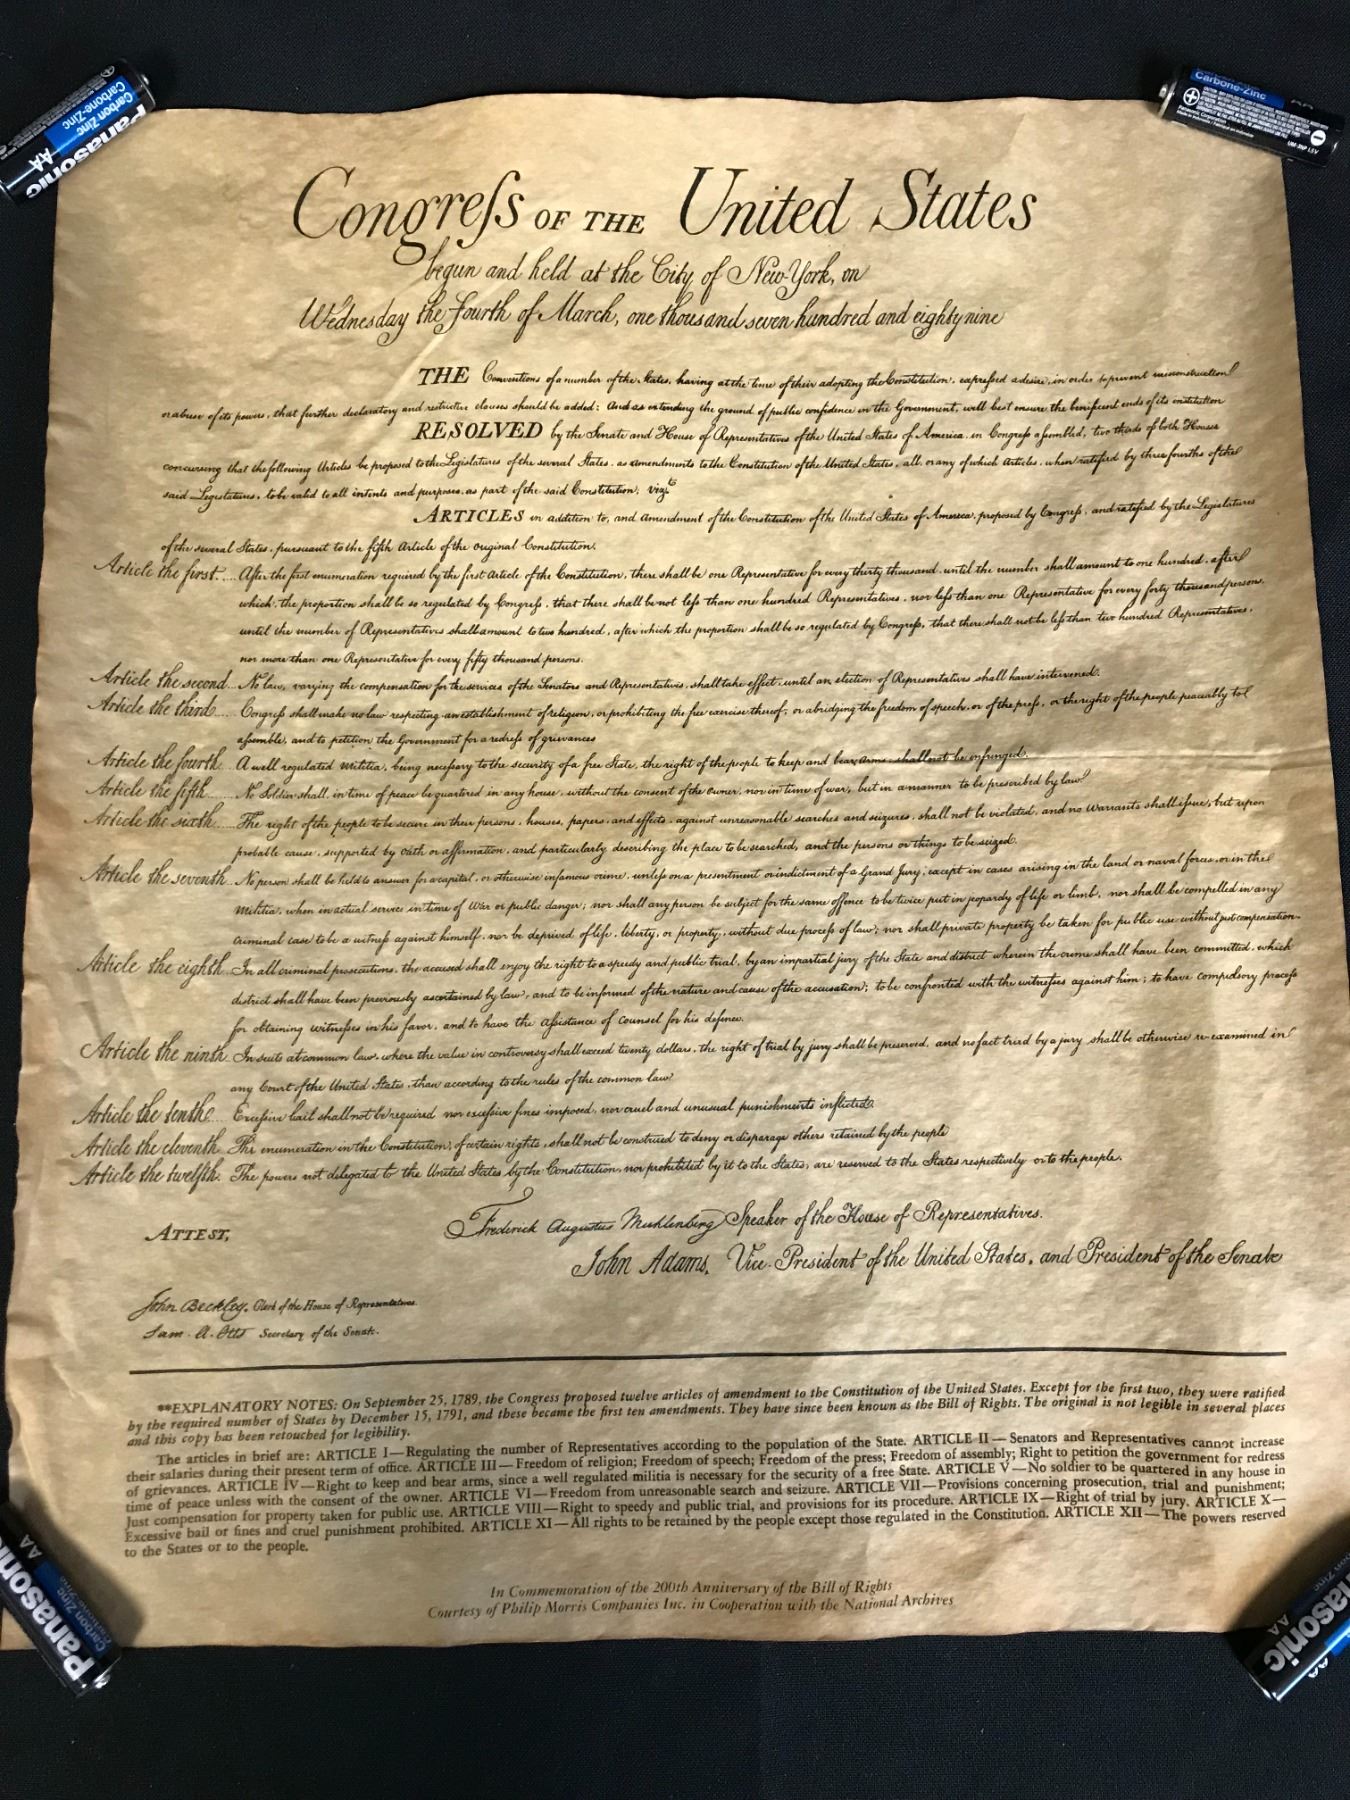 Congreſs OF THE United States
begun and held at the City of New-York, on
Wednesday the Fourth of March, one thousand seven hundred and eighty nine
THE Conventions of a number of the States, having at the time of their adopting the Constitution, expreſsed a desire, in order to prevent misconstruction
or abuse of its powers, that further declaratory and restrictive clauses should be added: And as extending the ground of public confidence in the Government, will best ensure the beneficent ends of its institution
RESOLVED by the Senate and House of Representatives of the United States of America, in Congreſs aſsembled, two thirds of both Houses
concurring that the following Articles be proposed to the Legislatures of the several States, as amendments to the Constitution of the United States, all, or any of which Articles, when ratified by three fourths of the
said Legislatures, to be valid to all intents and purposes, as part of the said Constitution; vizt
ARTICLES in addition to, and amendment of the Constitution of the United States of America, proposed by Congreſs, and ratified by the Legislatures
of the several States, pursuant to the fifth Article of the original Constitution.
Article the first.... After the first enumeration required by the first Article of the Constitution, there shall be one Representative for every thirty thousand, until the number shall amount to one hundred, after
which, the proportion shall be so regulated by Congreſs, that there shall be not leſs than one hundred Representatives, nor leſs than one Representative for every forty thousand persons,
until the number of Representatives shall amount to two hundred, after which the proportion shall be so regulated by Congreſs, that there shall not be leſs than two hundred Representatives,
nor more than one Representative for every fifty thousand persons.
Article the second... No law, varying the compensation for the services of the Senators and Representatives, shall take effect, until an election of Representatives shall have intervened.
Article the third..... Congreſs shall make no law respecting an establishment of religion, or prohibiting the free exercise thereof; or abridging the freedom of speech, or of the preſs, or the right of the people peaceably to
aſsemble, and to petition the Government for a redreſs of grievances
Article the fourth.. A well regulated militia, being neceſsary to the security of a free State, the right of the people to keep and bear arms, shall not be infringed.
Article the fifth..... No Soldier shall, in time of peace be quartered in any house, without the consent of the owner, nor in time of war, but in a manner to be prescribed by law
Article the sixth.... The right of the people to be secure in their persons, houses, papers, and effects, against unreasonable searches and seizures, shall not be violated, and no warrants shall iſsue, but upon
probable cause, supported by oath or affirmation, and particularly describing the place to be searched, and the persons or things to be seized.
Article the seventh.. No person shall be held to answer for a capital, or otherwise infamous crime, unleſs on a presentment or indictment of a Grand Jury; except in cases arising in the land or naval forces, or in the
Militia, when in actual service in time of War or public danger; nor shall any person be subject for the same offence to be twice put in jeopardy of life or limb, nor shall be compelled in any
criminal case to be a witneſs against himself, nor be deprived of life, liberty, or property, without due proceſs of law; nor shall private property be taken for public use without just compensation.
Article the eighth... In all criminal prosecutions, the accused shall enjoy the right to a speedy and public trial, by an impartial jury of the State and district wherein the crime shall have been committed, which
district shall have been previously ascertained by law, and to be informed of the nature and cause of the accusation; to be confronted with the witneſses against him; to have compulsory proceſs
for obtaining witneſses in his favor, and to have the aſsistance of counsel for his defence.
Article the ninth. In suits at common law, where the value in controversy shall exceed twenty dollars, the right of trial by jury shall be preserved, and no fact tried by a jury shall be otherwise re-examined in
any Court of the United States, than according to the rules of the common law
Article the tenth... Exceſsive bail shall not be required nor exceſsive fines imposed, nor cruel and unusual punishments inflicted.
Article the eleventh. The enumeration in the Constitution, of certain rights, shall not be construed to deny or disparage others retained by the people
Article the twelfth. The powers not delegated to the United States by the Constitution, nor prohibited by it to the States, are reserved to the States respectively or to the people.
Frederick Augustus Muhlenberg Speaker of the House of Representatives.
ATTEST,
John Adams, Vice-President of the United States, and President of the Senate
John Beckley, Clerk of the House of Representatives.
Sam. A. Otis Secretary of the Senate.
**EXPLANATORY NOTES: On September 25, 1789, the Congress proposed twelve articles of amendment to the Constitution of the United States. Except for the first two, they were ratified
by the required number of States by December 15, 1791, and these became the first ten amendments. They have since been known as the Bill of Rights. The original is not legible in several places
and this copy has been retouched for legibility.
The articles in brief are: ARTICLE I—Regulating the number of Representatives according to the population of the State. ARTICLE II — Senators and Representatives cannot increase
their salaries during their present term of office. ARTICLE III — Freedom of religion; Freedom of speech; Freedom of the press; Freedom of assembly; Right to petition the government for redress
of grievances. ARTICLE IV—Right to keep and bear arms, since a well regulated militia is necessary for the security of a free State. ARTICLE V—No soldier to be quartered in any house in
time of peace unless with the consent of the owner. ARTICLE VI—Freedom from unreasonable search and seizure. ARTICLE VII—Provisions concerning prosecution, trial and punishment;
Just compensation for property taken for public use. ARTICLE VIII—Right to speedy and public trial, and provisions for its procedure. ARTICLE IX—Right of trial by jury. ARTICLE X—
Excessive bail or fines and cruel punishment prohibited. ARTICLE XI—All rights to be retained by the people except those regulated in the Constitution. ARTICLE XII—The powers reserved
to the States or to the people.
In Commemoration of the 200th Anniversary of the Bill of Rights
Courtesy of Philip Morris Companies Inc. in Cooperation with the National Archives
Panasonic
AA
Carbon Zinc
Carbone-Zinc
Carbone-Zinc
AA
UM-3NP 1.5V
Panasonic
AA
Carbon Zinc
AA